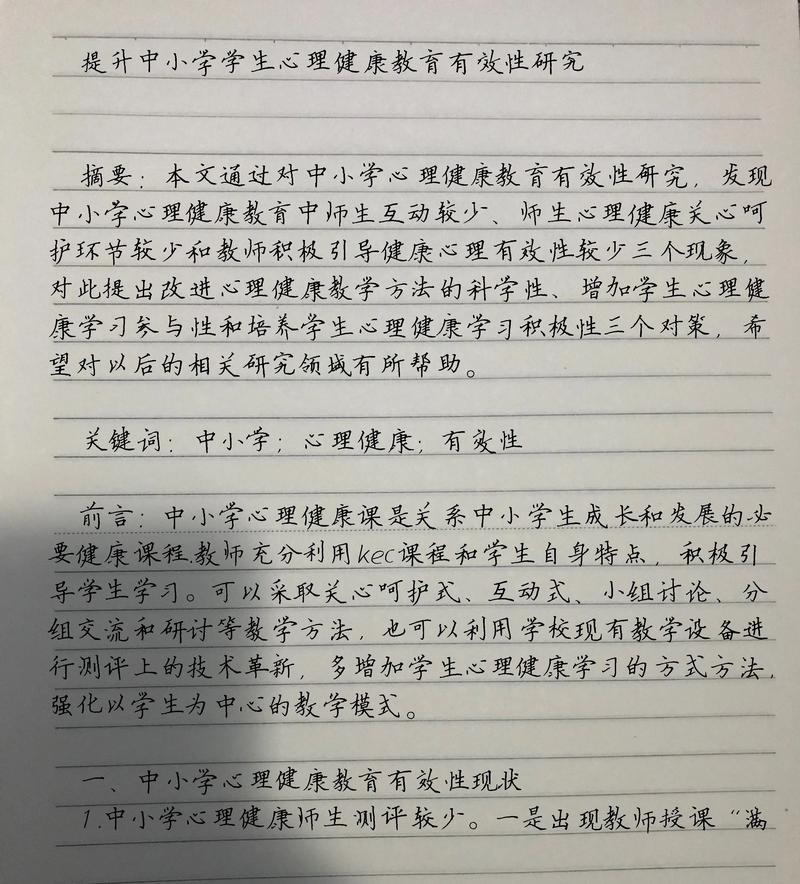 提升中小学学生心理健康教育有效性研究
摘要：本文通过对中小学心理健康教育有效性研究，发现
中小学心理健康教育中师生互动较少、师生心理健康关心呵
护环节较少和教师积极引导健康心理有效性较少三个现象，
对此提出改进心理健康教学方法的科学性、增加学生心理健
康学习参与性和培养学生心理健康学习积极性三个对策，希
望对以后的相关研究领域有所帮助。
关键词：中小学；心理健康；有效性
前言：中小学心理健康课是关系中小学生成长和发展的必
要健康课程.教师充分利用kec课程和学生自身特点，积极引
导学生学习。可以采取关心呵护式、互动式、小组讨论、分
组交流和研讨等教学方法，也可以利用学校现有教学设备进
行测评上的技术革新，多增加学生心理健康学习的方式方法，
强化以学生为中心的教学模式。
一、中小学心理健康教育有效性现状
1.中小学心理健康师生测评较少。一是出现教师授课“满